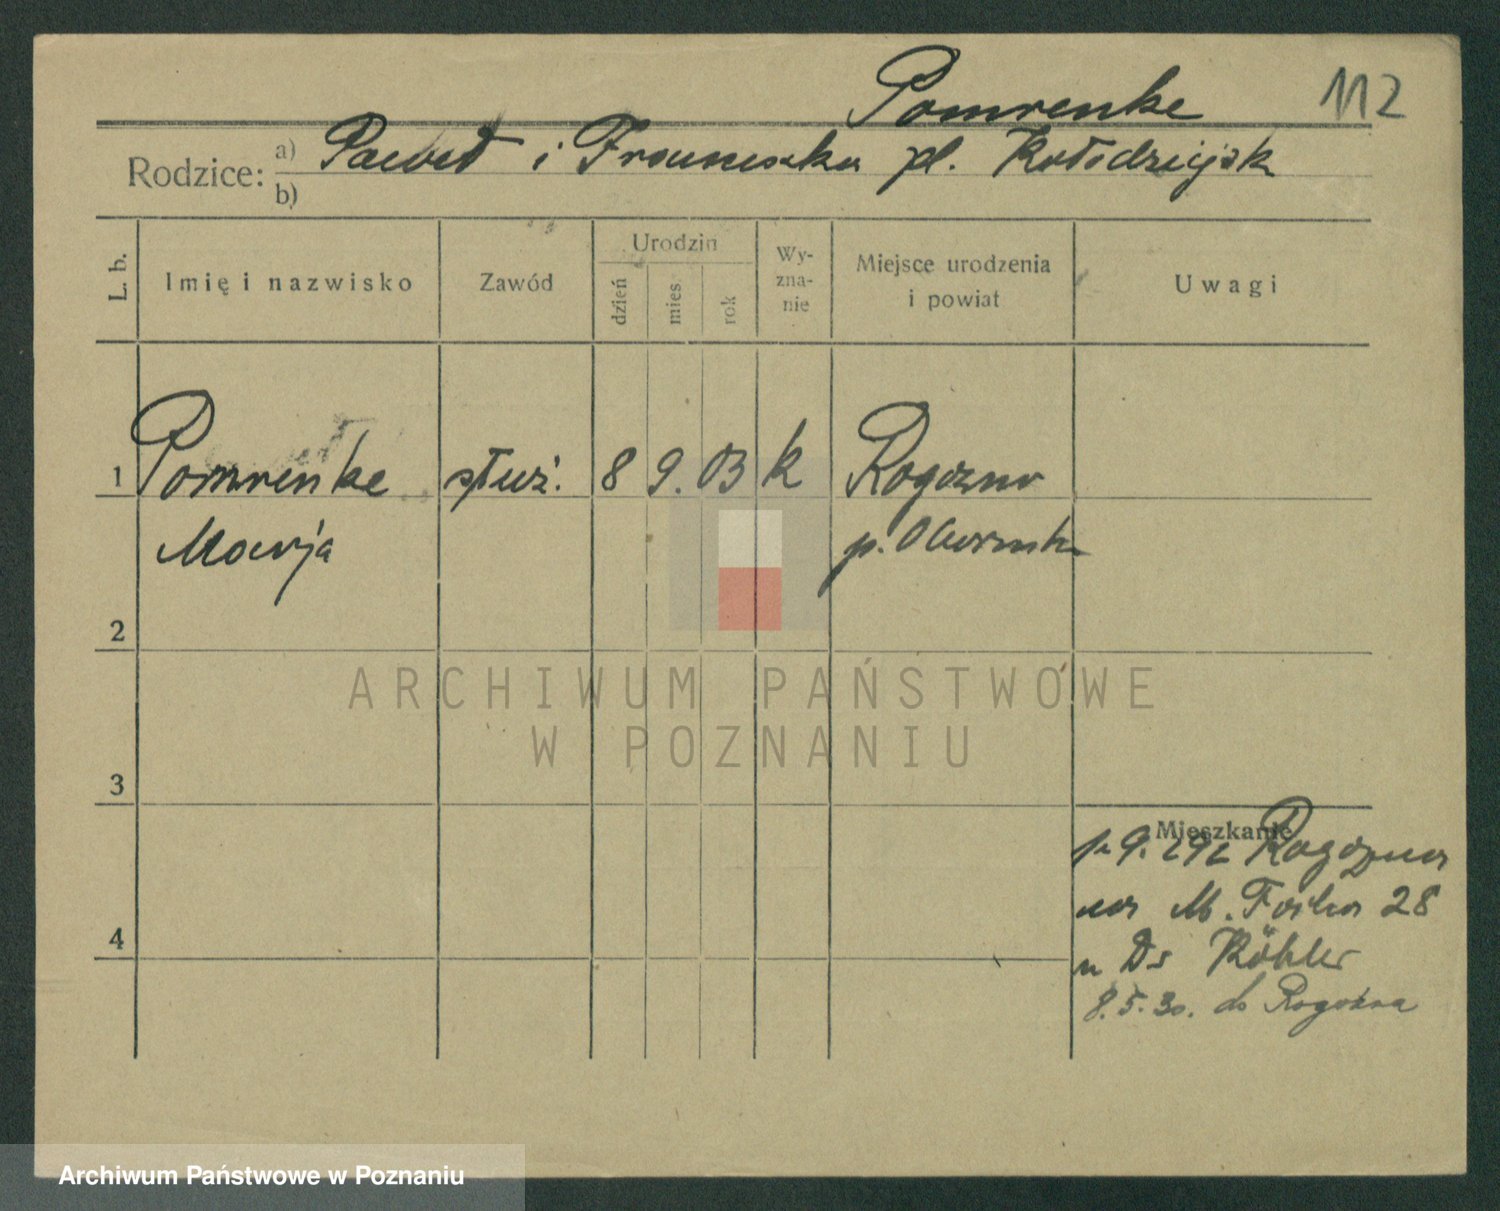 112
Pomrenke
Rodzice: a) Paweł i Franciszka pl. Kołodziejsk
b)
L. b. Imię i nazwisko Zawód Urodzin dzień mies. rok Wy-zna-nie Miejsce urodzenia i powiat Uwagi
1 Pomrenke służ. 8 9. 03 k Rogozno
Marja p. Obornik
2
ARCHIWUM PAŃSTWOWE
W POZNANIU
3
Mieszkanie
9. Rogozna
na M. Focha 28
u Köhler
8.5.30. do Rogoźna
4
Archiwum Państwowe w Poznaniu